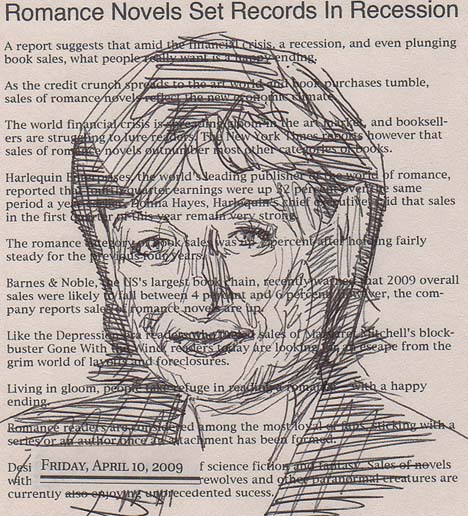 Romance Novels Set Records In Recession
A report suggests that amid the financial crisis, a recession, and even plunging
book sales, what people really want is a happy ending.
As the credit crunch spreads to the art world and book purchases tumble,
sales of romance novels reflect the new economic climate.
The world financial crisis is spreading gloom in the art market, and booksell-
ers are struggling to lure readers. The New York Times reports however that
sales of romance novels outnumber most other categories of books.
Harlequin Enterprises, the world's leading publisher of the world of romance,
reported that fourth-quarter earnings were up 32 percent over the same
period a year earlier. Donna Hayes, Harlequin's chief executive, said that sales
in the first quarter of this year remain very strong.
The romance category of book sales was up percent after holding fairly
steady for the previous four years.
Barnes & Noble, the US's largest book chain, recently warned that 2009 overall
sales were likely to fall between 4 percent and 6 percent. However, the com-
pany reports sales of romance novels are up.
Like the Depression era readers who fueled sales of Margaret Mitchell's block-
buster Gone With the Wind, readers today are looking for an escape from the
grim world of layoffs and foreclosures.
Living in gloom, people take refuge in reading a romance with a happy
ending.
Romance readers are considered among the most loyal of fans, sticking with a
series or an author once an attachment has been formed.
Desi f science fiction and fantasy. Sales of novels
FRIDAY, APRIL 10, 2009
with rewolves and other paranormal creatures are
currently also enjoying unprecedented sucess.